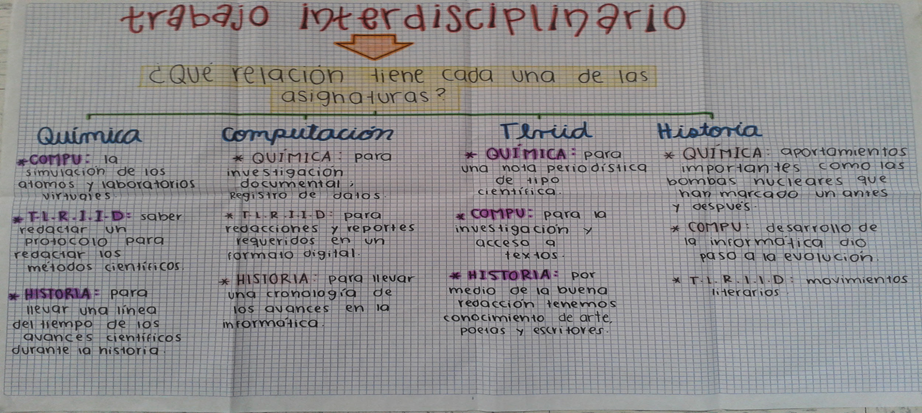 trabajo interdisciplinario
¿Qué relación tiene cada una de las
asignaturas?
Química
*COMPU: la
simulación de los
atomos y laboratorios
virtuales
*T-L-R-I-I-D: saber
redactar un
protocolo para
redactar los
metodos cientificos.
* HISTORIA: para
llevar una linea
del tiempo de los
avances cientificos
durante la historia.
Computación
* QUÍMICA: para
investigación
documental,
Registro de datos.
* T.L.R.I.I.D: para
redacciones y reportes
requeridos en un
formato digital.
* HISTORIA: para llevar
una cronología de
los avances en la
informatica.
Tlriid
* QUÍMICA: para
una nota periodistica
de tipo
cientifica.
* COMPU: para la
investigación y
acceso a
textos.
* HISTORIA: por
medio de la buena
redacción tenemos
conocimiento de arte,
poetas y escritores.
Historia
* QUÍMICA: aportamientos
importantes como las
bombas nucleares que
han marcado un antes
y despues.
* COMPU: desarrollo de
la informatica dio
paso a la evolución.
* T.L.R.I.I.D: movimientos
literarios.